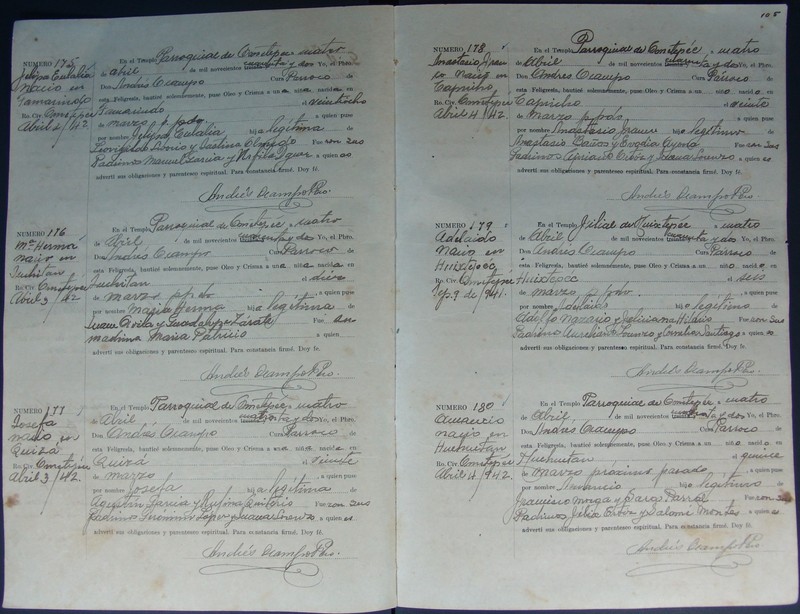 NUMERO 175
Felipa Eulalia
Nació en
Tamarindo
Ro. Civ. Ometepec
Abril 4/42.
En el Templo Parroquial de Ometepéc a cuatro
de abril de mil novecientos cuarenta y dos Yo, el Pbro.
Don Andrés Ocampo Cura Párroco de
esta Feligresía, bauticé solemnemente, puse Oleo y Crisma a una niña nacida en
Tamarindo el veintiocho
de marzo p. pdo. a quien puse
por nombre Felipa Eulalia hija legítima de
y Olmedo Fueron sus
Padrinos Manuel y a quien es
advertí sus obligaciones y parentesco espiritual. Para constancia firmé. Doy fe.
Andrés Ocampo Pbro.
NUMERO 176
Ma. Herma
nació en
Juchitán
Ro. Civ. Ometepec
Abril 3/42
En el Templo Parroquial de Ometepéc a cuatro
de Abril de mil novecientos cuarenta y dos Yo, el Pbro.
Don Andrés Ocampo Cura Párroco de
esta Feligresía, bauticé solemnemente, puse Oleo y Crisma a una niña nacida en
Juchitán el diez
de marzo p. pdo. a quien puse
por nombre María Herma hija legítima de
Juan Avila y Guadalupe Zárate Fue su
madrina María Patricio a quien
advertí sus obligaciones y parentesco espiritual. Para constancia firmé. Doy fe.
Andrés Ocampo Pbro.
NUMERO 177
Josefa
nació en
Quizá
Ro. Civ. Ometepéc
Abril 3/42.
En el Templo Parroquial de Ometepéc a cuatro
de Abril de mil novecientos cuarenta y dos Yo, el Pbro.
Don Andrés Ocampo Cura Párroco de
esta Feligresía, bauticé solemnemente, puse Oleo y Crisma a una niña nacida en
Quizá el veinte
de marzo a quien puse
por nombre Josefa hija legítima de
Agustín García y Rufina Fueron sus
Padrinos Gerónimo López y Juana Lorenzo a quien es
advertí sus obligaciones y parentesco espiritual. Para constancia firmé. Doy fe.
Andrés Ocampo Pbro.
105
NUMERO 178
Anastasio
nació en
Capricho
Ro. Civ. Ometepéc
Abril 4/42.
En el Templo Parroquial de Ometepéc a cuatro
de Abril de mil novecientos cuarenta y dos Yo, el Pbro.
Don Andrés Ocampo Cura Párroco de
esta Feligresía, bauticé solemnemente, puse Oleo y Crisma a un niño nacido en
Capricho el veinte
de Marzo p. pdo. a quien puse
por nombre Anastasio hijo legítimo de
Anastasio Baños y Evodia Ayona Fueron sus
Padrinos Apriano y Juana Lorenzo a quien es
advertí sus obligaciones y parentesco espiritual. Para constancia firmé. Doy fe.
Andrés Ocampo Pbro.
NUMERO 179
Adelaido
nació en
Huixtcoca
Ro. Civ. Ometepéc
Sep. 9 de 941.
En el Templo Filial de a cuatro
de Abril de mil novecientos cuarenta y dos Yo, el Pbro.
Don Andrés Ocampo Cura Párroco de
esta Feligresía, bauticé solemnemente, puse Oleo y Crisma a un niño nacido en
el seis
de marzo p. pdo. a quien puse
por nombre Adelaido hijo legítimo de
Adolfo Navarro y Feliciana Hilario Fueron sus
Padrinos Aurelia Lorenzo y Santiago a quien es
advertí sus obligaciones y parentesco espiritual. Para constancia firmé. Doy fe.
Andrés Ocampo Pbro.
NUMERO 180
Amancio
nació en
Huehuetán
Ro. Civ. Ometepéc
Abril 4/942.
En el Templo Parroquial de Ometepéc a cuatro
de Abril de mil novecientos cuarenta y dos Yo, el Pbro.
Don Andrés Ocampo Cura Párroco de
esta Feligresía, bauticé solemnemente, puse Oleo y Crisma a un niño nacido en
Huehuetán el quince
de Marzo próximo pasado, a quien puse
por nombre Amancio hijo legítimo de
Francisco Moga y Sara Parral Fueron sus
Padrinos Felix y Salomé Montes a quien es
advertí sus obligaciones y parentesco espiritual. Para constancia firmé. Doy fe.
Andrés Ocampo Pbro.